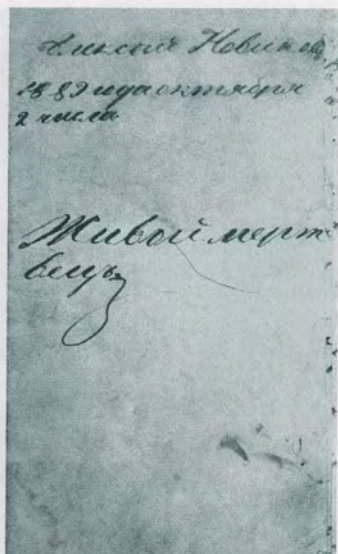 Алексей Новиковъ
1882 года октября
2 числа
Живой мерт
вецъ